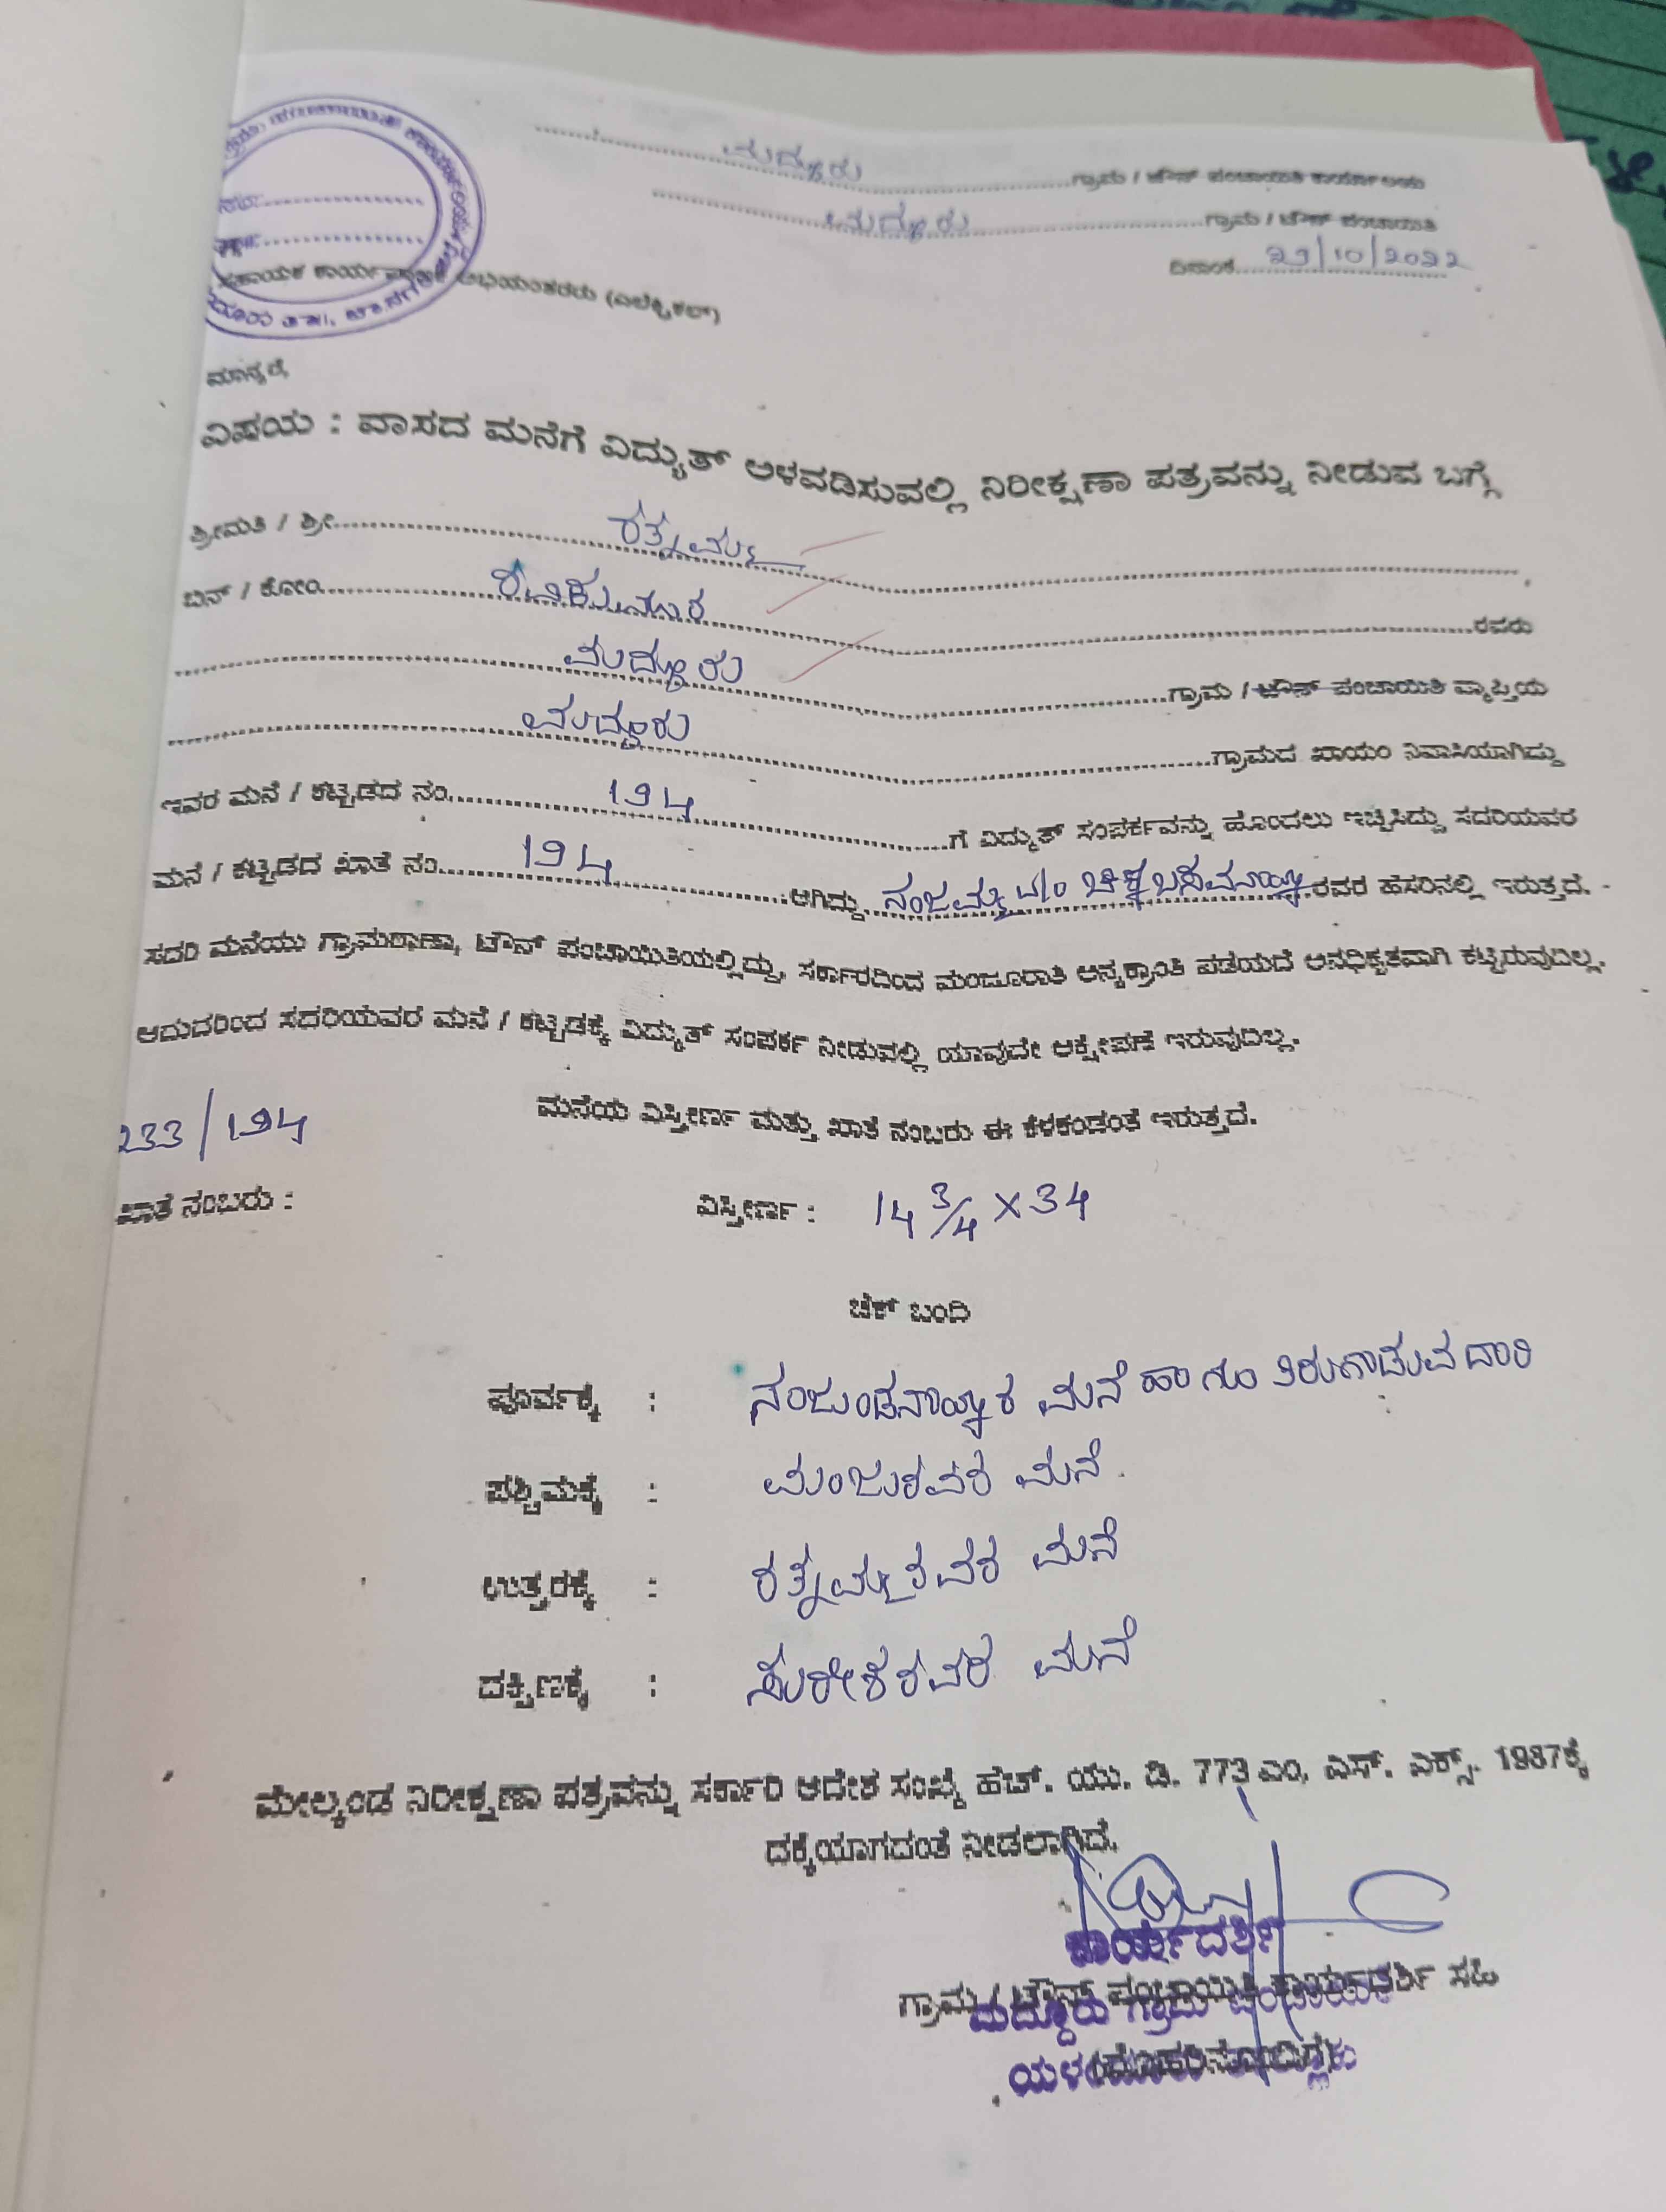 ಮದ್ದೂರು ಗ್ರಾಮ / ಟೌನ್ ಪಂಚಾಯಿತಿ ಕಾರ್ಯಾಲಯ
ಮದ್ದೂರು ಗ್ರಾಮ / ಟೌನ್ ಪಂಚಾಯಿತಿ
ದಿನಾಂಕ 29/10/2022
ಸಹಾಯಕ ಕಾರ್ಯಪಾಲಕ ಅಭಿಯಂತರರು (ಎಲೆಕ್ಟ್ರಿಕಲ್)
ಮಾನ್ಯರೆ,
ವಿಷಯ : ವಾಸದ ಮನೆಗೆ ವಿದ್ಯುತ್ ಅಳವಡಿಸುವಲ್ಲಿ ನಿರೀಕ್ಷಣಾ ಪತ್ರವನ್ನು ನೀಡುವ ಬಗ್ಗೆ
ಶ್ರೀಮತಿ / ಶ್ರೀ ರತ್ನಮ್ಮ
ಬಿನ್ / ಕೋಂ ರವಿಕುಮಾರ ರವರು
ಮದ್ದೂರು ಗ್ರಾಮ / ಟೌನ್ ಪಂಚಾಯಿತಿ ವ್ಯಾಪ್ತಿಯ
ಮದ್ದೂರು ಗ್ರಾಮದ ಖಾಯಂ ನಿವಾಸಿಯಾಗಿದ್ದು
ಇವರ ಮನೆ / ಕಟ್ಟಡದ ನಂ. 194 ಗೆ ವಿದ್ಯುತ್ ಸಂಪರ್ಕವನ್ನು ಹೊಂದಲು ಇಚ್ಛಿಸಿದ್ದು ಸದರಿಯವರ
ಮನೆ / ಕಟ್ಟಡದ ಖಾತೆ ನಂ. 194 ಆಗಿದ್ದು ನಂಜಮ್ಮ W/o ಚಿಕ್ಕಬಸವನಾಯ್ಕ ರವರ ಹೆಸರಿನಲ್ಲಿ ಇರುತ್ತದೆ.
ಸದರಿ ಮನೆಯು ಗ್ರಾಮಠಾಣಾ, ಟೌನ್ ಪಂಚಾಯಿತಿಯಲ್ಲಿದ್ದು, ಸರ್ಕಾರದಿಂದ ಮಂಜೂರಾತಿ ಅನ್ಯಕ್ರಾಂತಿ ಪಡೆಯದೆ ಅನಧಿಕೃತವಾಗಿ ಕಟ್ಟಿರುವುದಿಲ್ಲ.
ಆದುದರಿಂದ ಸದರಿಯವರ ಮನೆ / ಕಟ್ಟಡಕ್ಕೆ ವಿದ್ಯುತ್ ಸಂಪರ್ಕ ನೀಡುವಲ್ಲಿ ಯಾವುದೇ ಆಕ್ಷೇಪಣೆ ಇರುವುದಿಲ್ಲ.
ಮನೆಯ ವಿಸ್ತೀರ್ಣ ಮತ್ತು ಖಾತೆ ನಂಬರು ಈ ಕೆಳಕಂಡಂತೆ ಇರುತ್ತದೆ.
233/194
ಖಾತೆ ನಂಬರು : ವಿಸ್ತೀರ್ಣ : 14 3/4 X 34
ಚೆಕ್ ಬಂದಿ
ಪೂರ್ವಕ್ಕೆ : ನಂಜುಂಡನಾಯ್ಕರ ಮನೆ ಹಾಗೂ ತಿರುಗಾಡುವ ದಾರಿ
ಪಶ್ಚಿಮಕ್ಕೆ : ಮಂಜುರವರ ಮನೆ
ಉತ್ತರಕ್ಕೆ : ರತ್ನಮ್ಮರವರ ಮನೆ
ದಕ್ಷಿಣಕ್ಕೆ : ಸುರೇಶರವರ ಮನೆ
ಮೇಲ್ಕಂಡ ನಿರೀಕ್ಷಣಾ ಪತ್ರವನ್ನು ಸರ್ಕಾರಿ ಆದೇಶ ಸಂಖ್ಯೆ ಹೆಚ್. ಯು. ಡಿ. 773 ಎಂ. ಎಸ್. ಎಕ್ಸ್. 1987ಕ್ಕೆ
ದಕ್ಕೆಯಾಗದಂತೆ ನೀಡಲಾಗಿದೆ.
ಕಾರ್ಯದರ್ಶಿ
ಗ್ರಾಮ / ಟೌನ್ ಪಂಚಾಯಿತಿ ಕಾರ್ಯದರ್ಶಿ ಸಹಿ
ಮದ್ದೂರು ಗ್ರಾಮ ಪಂಚಾಯಿತಿ